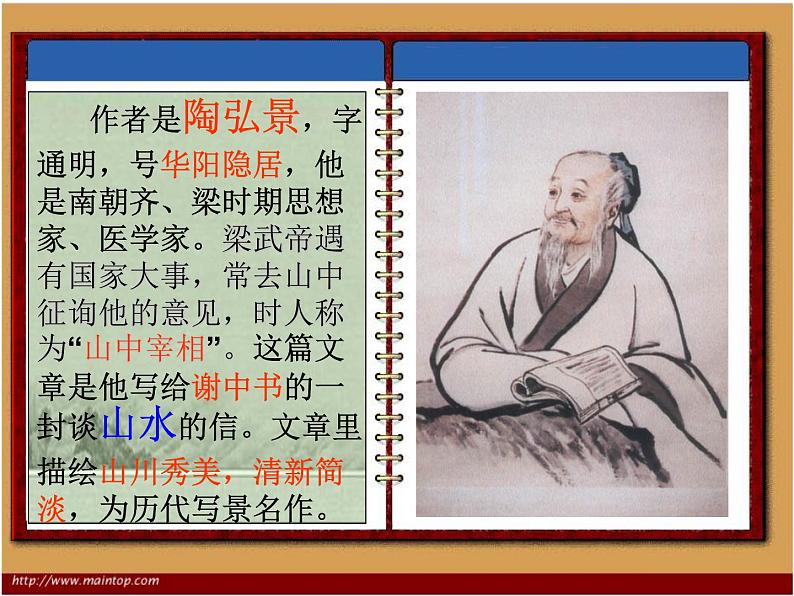 作者是陶弘景，字
通明，号华阳隐居，他
是南朝齐、梁时期思想
家、医学家。梁武帝遇
有国家大事，常去山中
征询他的意见，时人称
为“山中宰相”。这篇文
章是他写给谢中书的一
封谈山水的信。文章里
描绘山川秀美，清新简
淡，为历代写景名作。
http://www.maintop.com